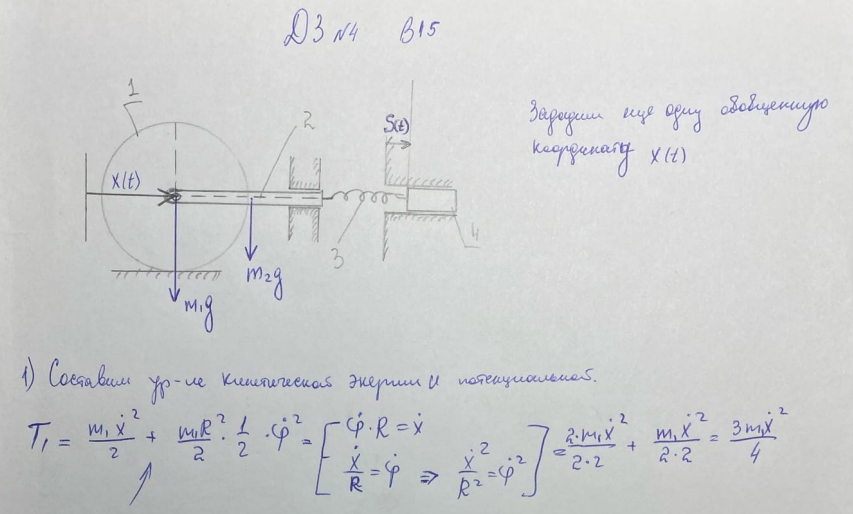 ДЗ №4 В15
1
2
S(t)
Зададим еще одну обобщенную
координату x(t)
x(t)
3
4
m₂g
m₁g
1) Составим ур-ие кинетической энергии и потенциальной.
T₁ = m₁ẋ²/2 + m₁R²/2 · 1/2 · φ̇² = [φ̇·R = ẋ; ẋ/R = φ̇ ⇒ ẋ²/R² = φ̇²] = 2·m₁ẋ²/2·2 + m₁ẋ²/2·2 = 3m₁ẋ²/4